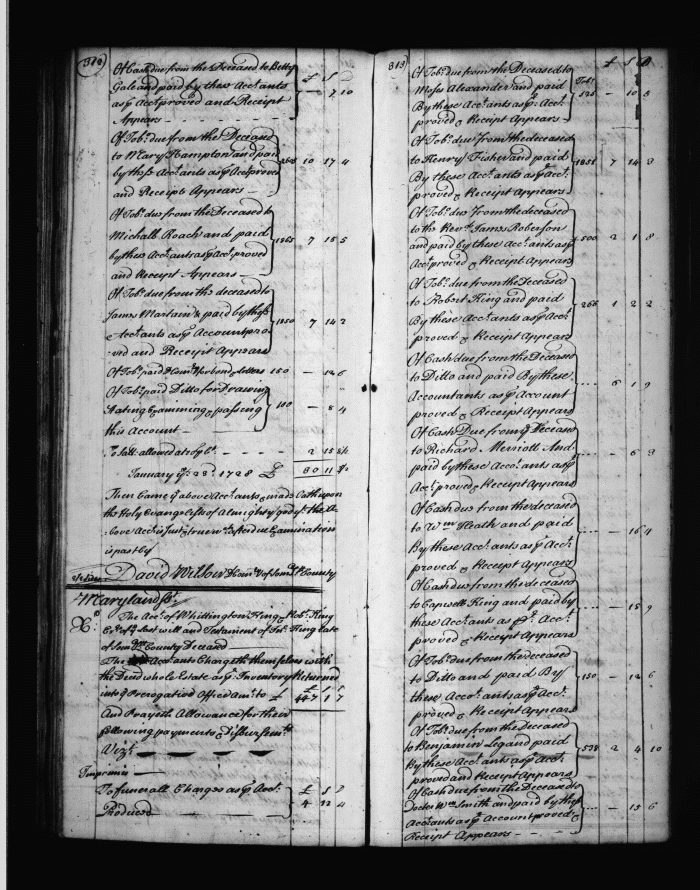 312
Of Cash due from the Deceased to Betty
Gale and paid by these Accotants
as p Acct proved and Receipt
Appears - - - - - 7 10
£ S D
Of Tobo due from the Deceased
to Mary Hampton and paid
by these Accotants as p Acct proved
and Receipt Appears — 10 17 4
Of Tobo due from the Deceased to
Michall Roach and paid
by these Accotants as p Acct proved 1865 7 15 5
and Receipt Appears —
Of Tobo due from the deceased to
James Martain & paid by these
Accotants as p Account pro- 7 14 2
-ved and Receipt Appears
Of Tobo paid letters 150 — 12 6
Of Tobo paid Ditto for Drawing
Stating Examining & passing 100 — 8 4
this Account —
To Sall: allowed at 2 15
January ye 22d 1728 £ 80 11
Then Came ye above Accotants & made Oath upon
the Holy Evangelists of Almighty god yt the A-
bove Acct is Just & true wch after due Examination
is past by
David Wilson Com of Somst County
Maryland Sst
The Acct of Whittington King & Robt King
Exrs of ye Last will and Testament of King late
of Somst County Deceased
The Accotants Chargeth themselves with
the Decd whole Estate as p Inventory Returned
into ye Prerogative Office Amt to £ 447 1 7
And Prayeth Allowance for their
following payments & Disbursemts
Vizt
Imprimis —
To funerall Charges as p Acct £ S D
Produced — 4 12 4
313
£ S D
Of Tobo due from the Deceased to
Moses Alexander and paid Tobo
By these Accotants as p Acct 125 — 10 5
proved & Receipt Appears
Of Tobo due from the deceased
to Henry Fisher and paid
By these Accotants as p Acct 7 14 3
proved & Receipt Appears
Of Tobo due from the deceased
to the Revd James Roberson
and paid by these Accotants as p 500 2 1 8
Acct proved & Receipt Appears
Of Tobo due from the Deceased
to Robert King and paid
By these Accotants as p Acct 266 1 2 2
proved & Receipt Appears
Of Cash due from the Deceased
to Ditto and paid By these
Accountants as p Account 6 1 9
proved & Receipt Appears
Of Cash Due from ye Deceased
to Richard Merriott And
paid by these Accotants as p — 6 3
Acct proved & Receipt Appears
Of Cash due from the deceased
to Wm Heath and paid
By these Accotants as p Acct — 16 4
proved & Receipt Appears
Of Cash due from the deceased
to Capwell King and paid by
these Accotants as p Acct — 15 9
proved & Receipt Appears
Of Tobo due from the deceased
to Ditto and paid By
these Accotants as p Acct 150 — 12 6
proved & Receipt Appears
Of Tobo due from the deceased
to Benjamin and paid
By these Accotants as p Acct 538 2 4 10
proved and Receipt Appears
Of Cash due from the Deceased to
Doctor Wm Smith and paid by these
Accotants as p Account proved & — 15 6
Receipt Appears — - - -